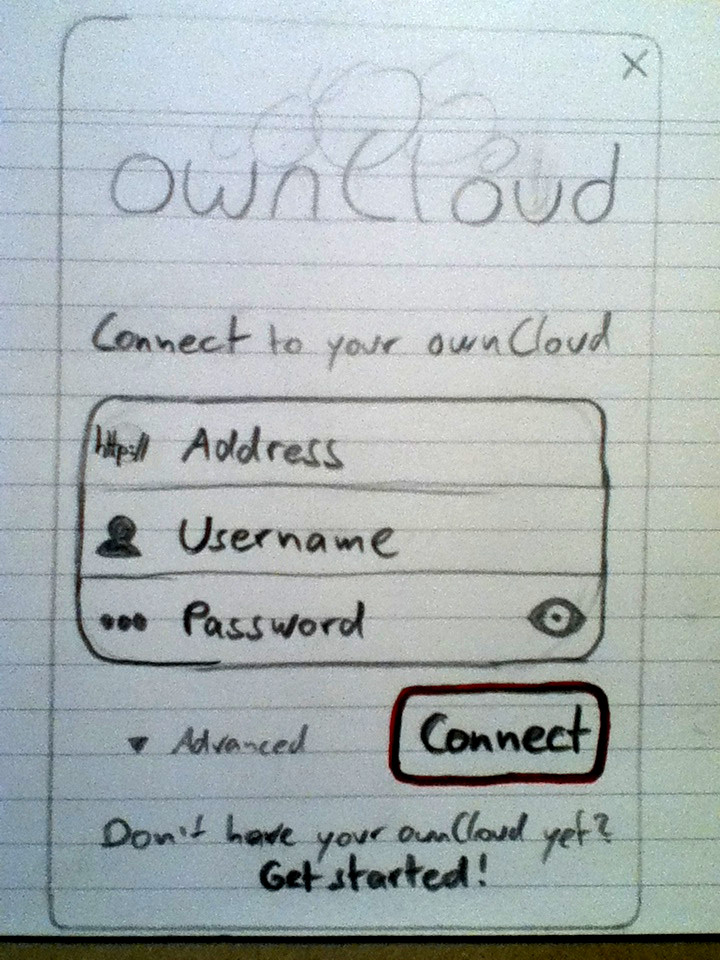 ownCloud
Connect to your ownCloud
http:// Address
Username
Password
Advanced
Connect
Don't have your ownCloud yet?
Get started!